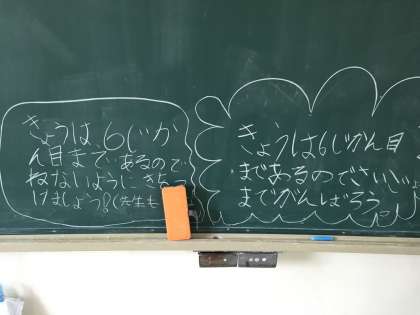 きょうは、6じか
ん目まであるので
ねないようにきをつ
けましょう!(先生も
きょうは6じかん目
まであるのでさいご
までがんばろう